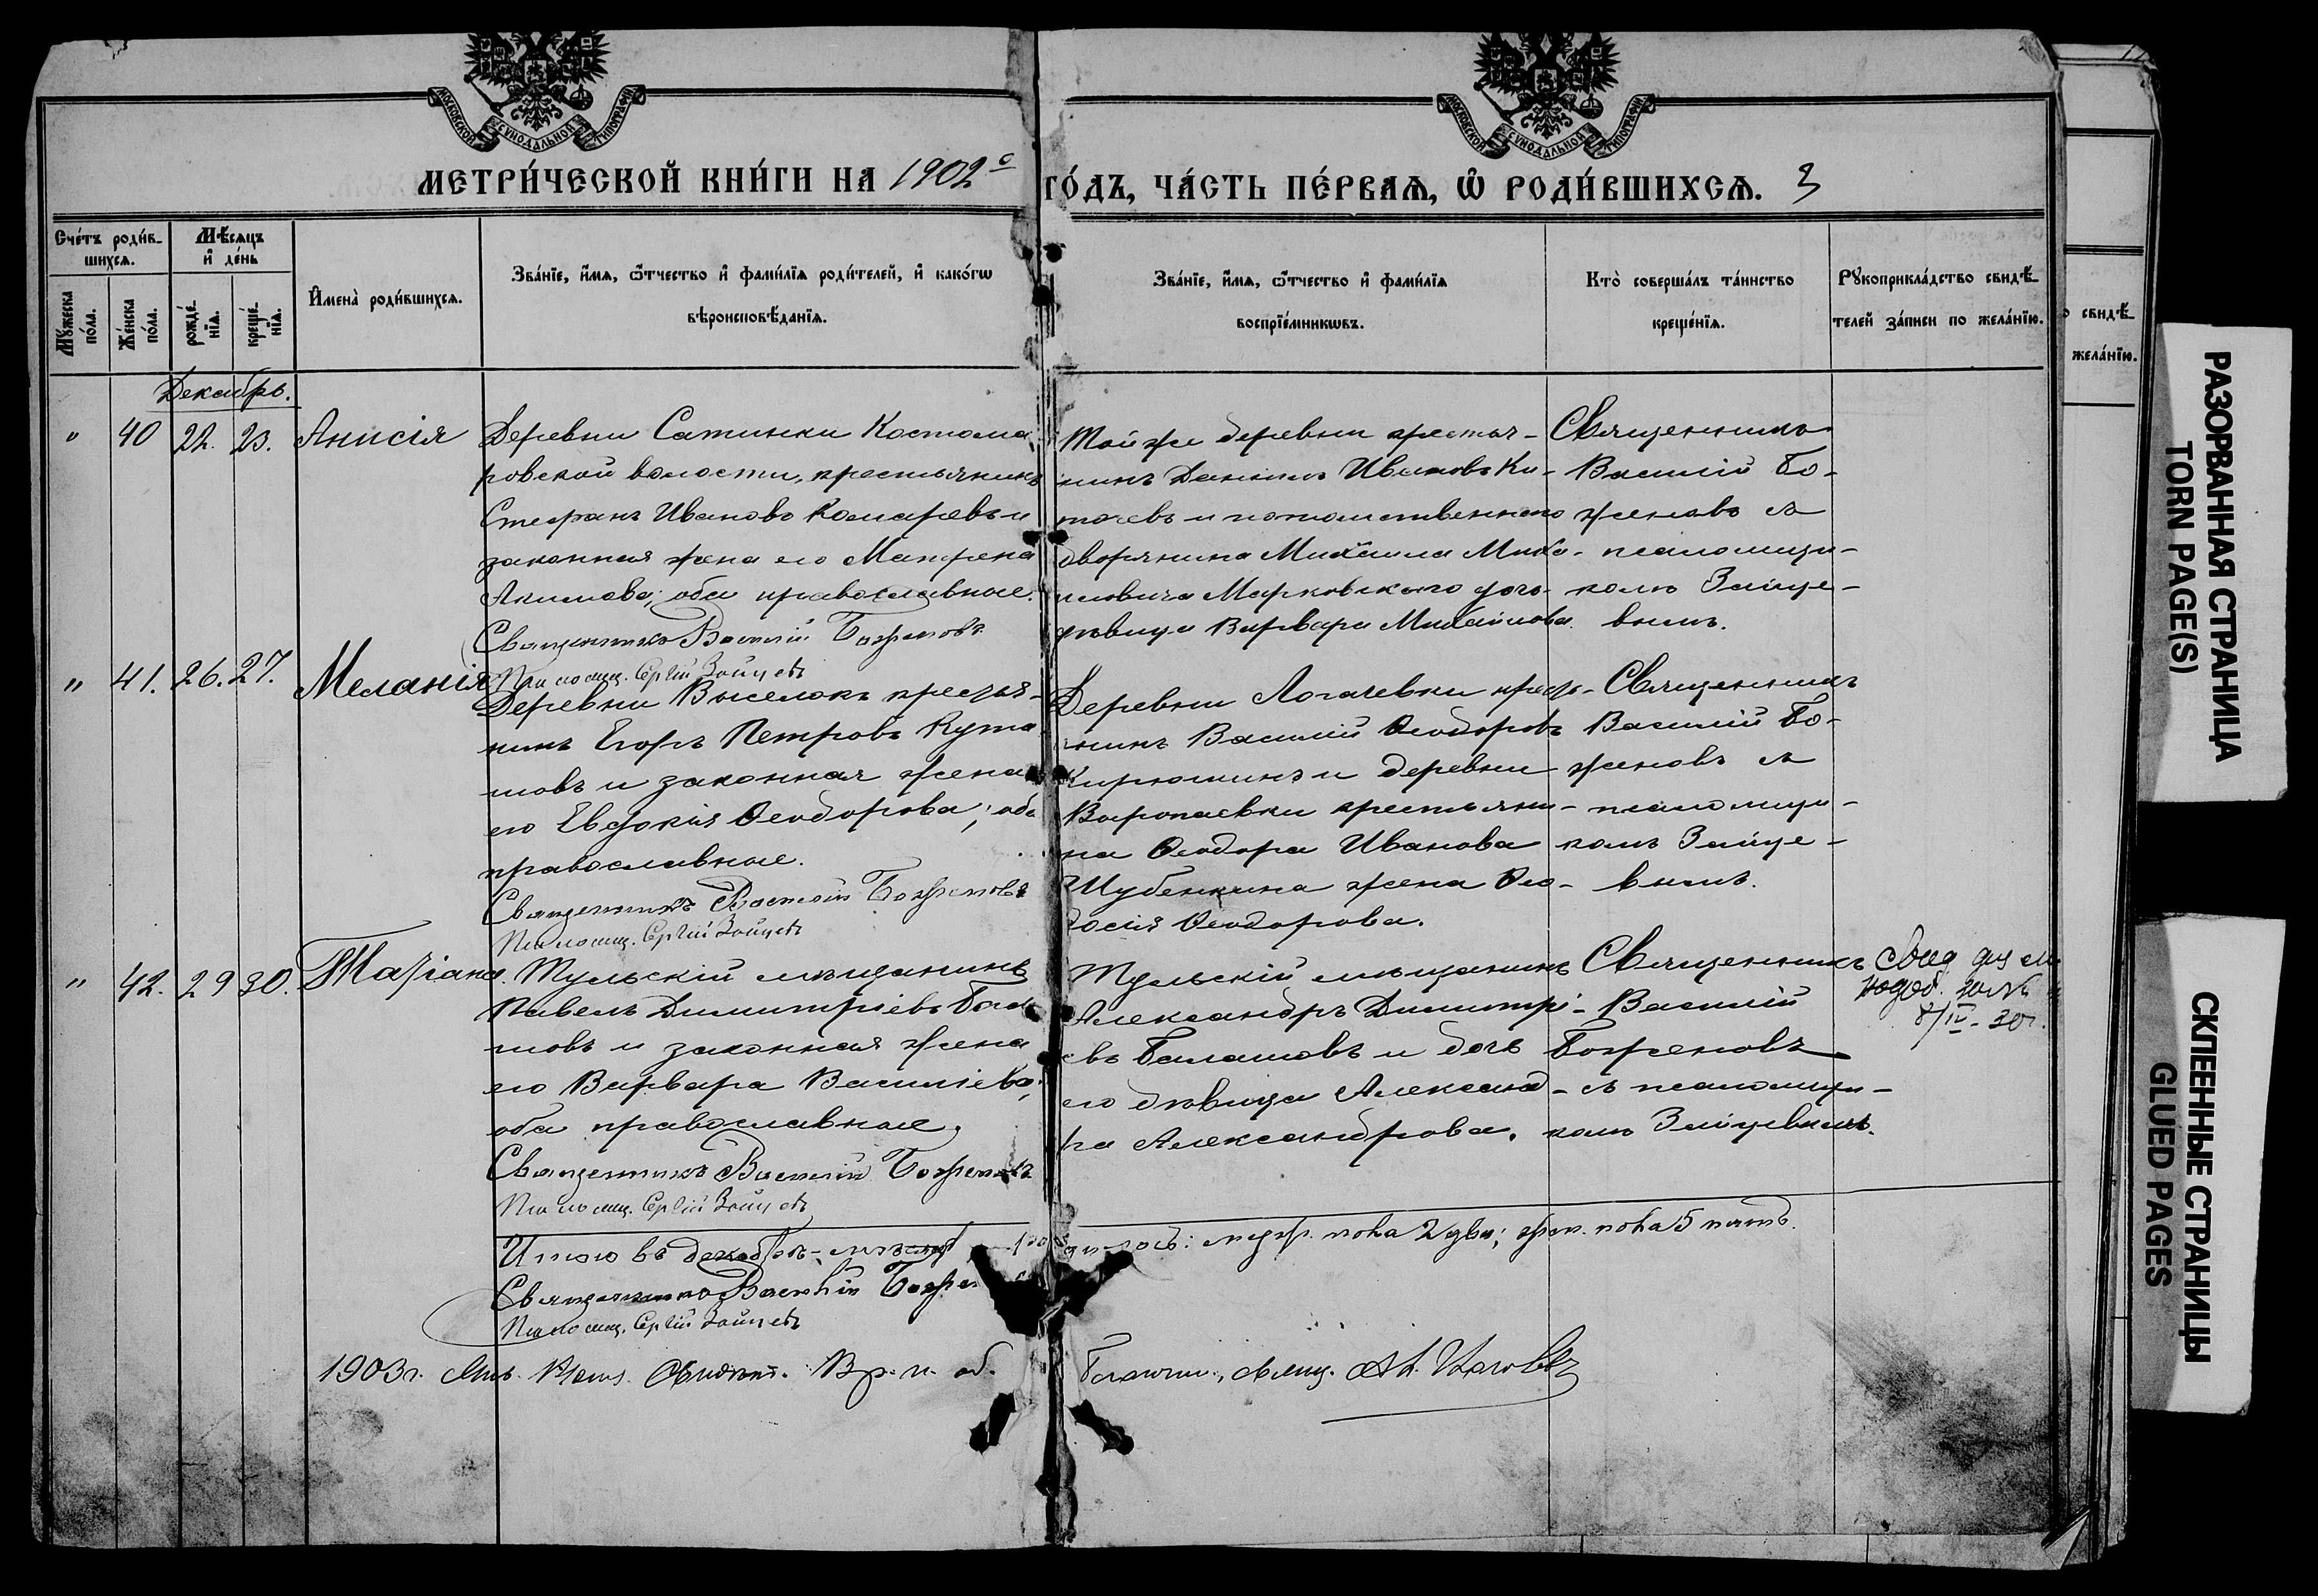 МОСКОВСКОЙ СУНОДАЛЬНОЙ ТИПОГРАФІИ
МОСКОВСКОЙ СУНОДАЛЬНОЙ ТИПОГРАФІИ
МЕТРИ́ЧЕСКОЙ КНИ́ГИ НА 1902 ГО́ДЪ, ЧА́СТЬ ПЕ́РВАѦ, Ѡ РОДИ́ВШИХСѦ. 3
Сче́тъ роди́в-
шихсѧ.
Мꙋ́жеска
по́ла.
Же́нска
по́ла.
Мѣ́сѧцъ
и де́нь
рожде́-
нїѧ.
креще́-
нїѧ.
Имена̀ роди́вшихсѧ.
Зва́нїе, и́мѧ, ѻ́тчество и фами́лїѧ роди́телей, и како́гѡ
вѣроисповѣ́данїѧ.
Зва́нїе, и́мѧ, ѻ́тчество и фами́лїѧ
воспрїе́мникѡвъ.
Кто̀ соверша́лъ та́инство
креще́нїѧ.
Рꙋкоприкла́дство свидѣ́-
телей за́писи по жела́нїю.
свидѣ́-
жела́нїю.
Декабрь.
" 40 22. 23. Анисія
Деревни Сатинки Костома
ровской волости, крестьянинъ
Стефанъ Ивановъ Комаревъ и
законная жена его Матрена
Акимова; оба православные.
Священникъ Василій Боженовъ
Псаломщ. Сергій Зайцевъ
Той же деревни кресть-
нинъ Даніилъ Ивановъ Ки-
таевъ и потомственнаго
дворянина Михаила Миха-
иловича Марковскаго дочь
дѣвица Варвара Михайлова.
Священникъ
Василій Бо-
женовъ съ
псаломщи-
комъ Зайце-
вымъ.
" 41. 26. 27. Меланія
Деревни Выселокъ крестья-
нинъ Егоръ Петровъ Кута
товъ и законная жена
его Евдокія Ѳеодорова; оба
православные.
Священникъ Василій Боженовъ
Псаломщ. Сергій Зайцевъ
Деревни Логачевки кресть-
нинъ Василій Ѳеодоровъ
Кирюшинъ и деревни
Воропаевки крестьяни-
на Ѳеодора Иванова
Шубенкина жена Ѳео-
досія Ѳеодорова.
Священникъ
Василій Бо-
женовъ съ
псаломщи-
комъ Зайце-
вымъ.
" 42. 29 30. Татіана.
Тульскій мѣщанинъ
Павелъ Димитріевъ Бала
шовъ и законная жена
его Варвара Василіева;
оба православные.
Священникъ Василій Боженовъ
Псаломщ. Сергій Зайцевъ
Тульскій мѣщанинъ
Александръ Димитрі-
евъ Балашовъ и дочь
его дѣвица Александ-
ра Александрова.
Священникъ
Василій
Боженовъ
съ псаломщи-
комъ Зайцевымъ.
8/IV-30г.
Итого въ декабрѣ мѣсяцѣ родилось: муж. пола 2 два; жен. пола 5 пять.
Священникъ Василій Боженовъ
Псаломщ. Сергій Зайцевъ
1903г. Свидѣт.
РАЗОРВАННАЯ СТРАНИЦА
TORN PAGE(S)
СКЛЕЕННЫЕ СТРАНИЦЫ
GLUED PAGES